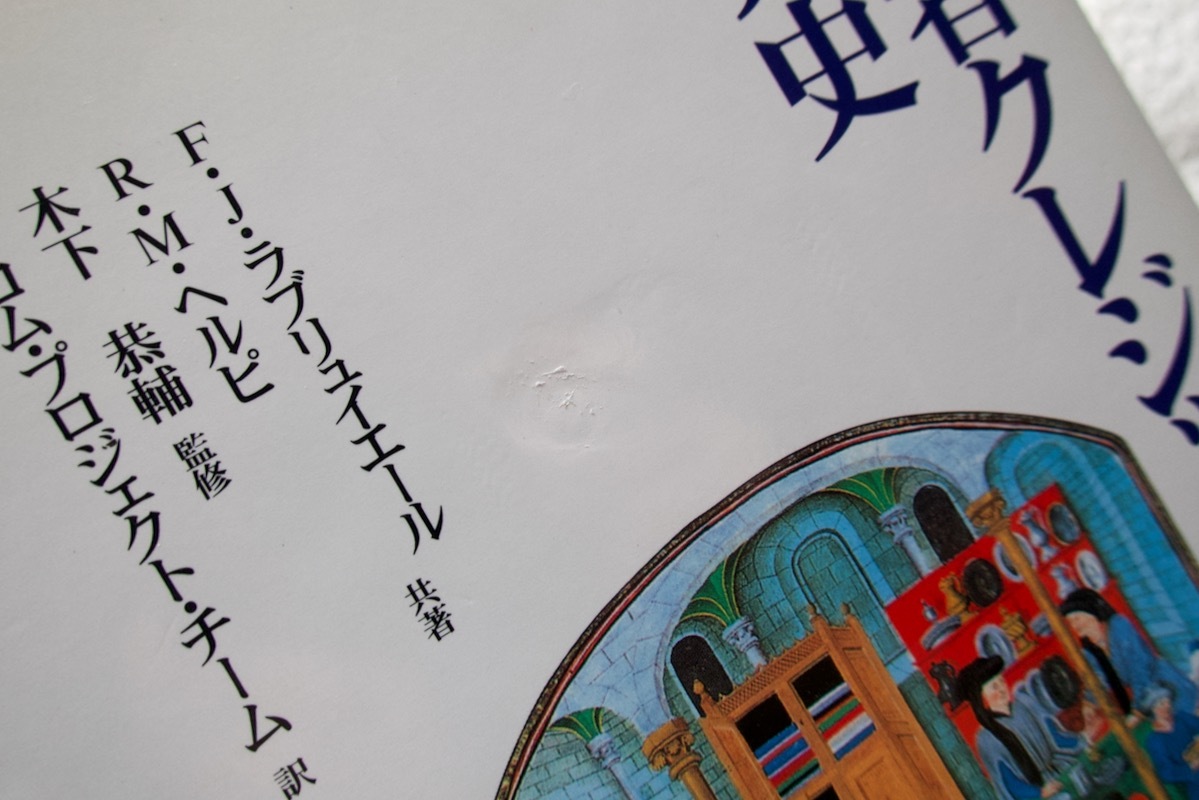 者クレジッ
史
F・J・ラブリュイエール 共著
R・M・ヘルピ
木下 恭輔 監修
コム・プロジェクト・チーム 訳